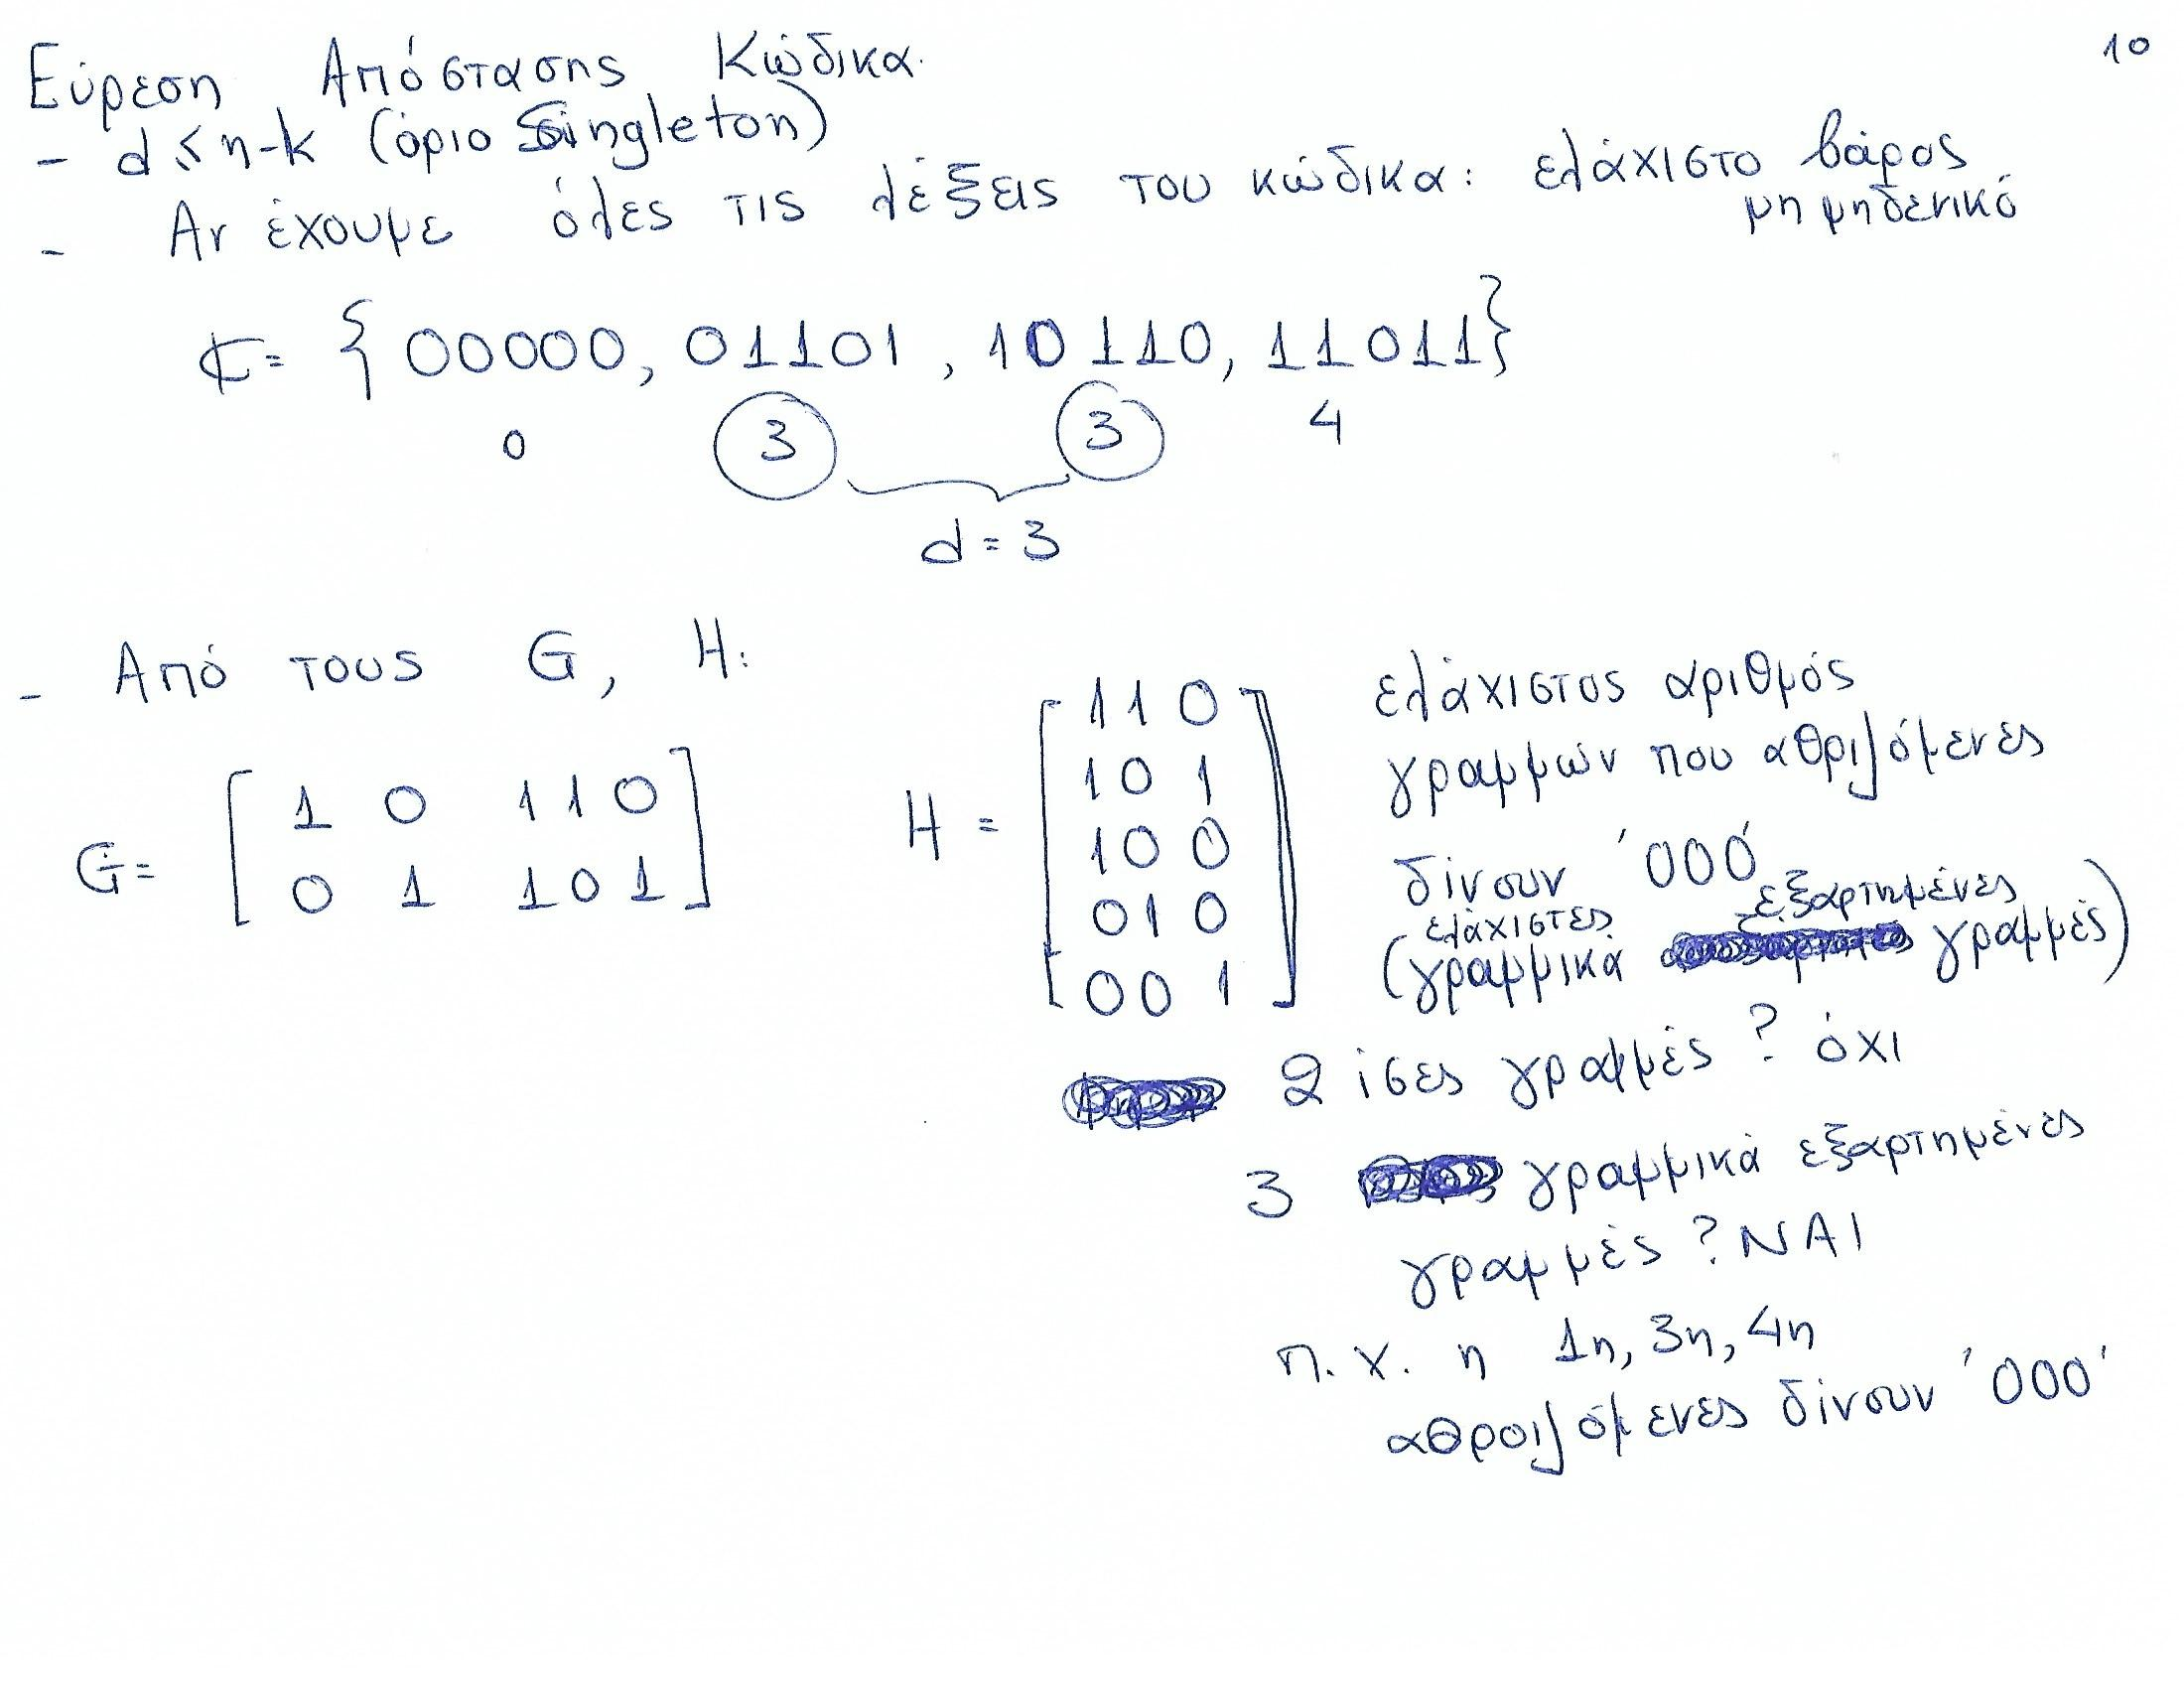 10
Εύρεση Απόστασης Κώδικα.
- d ≤ n-k (όριο Singleton)
- Αν έχουμε όλες τις λέξεις του κώδικα: ελάχιστο βάρος
μη μηδενικό
C = { 00000, 01101, 10110, 11011}
0 3 3 4
d = 3
- Από τους G, H:
G = [ 1 0 1 1 0
0 1 1 0 1 ]
H = [ 1 1 0
1 0 1
1 0 0
0 1 0
0 0 1 ]
ελάχιστος αριθμός
γραμμών που αθριζόμενες
δίνουν '000'
ελάχιστες εξαρτημένες
(γραμμικά γραμμές)
2 ίσες γραμμές ? όχι
3 γραμμικά εξαρτημένες
γραμμές ? ΝΑΙ
π.χ. η 1η, 3η, 4η
αθροιζόμενες δίνουν '000'